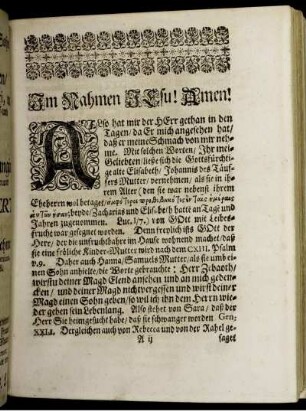 Im Nahmen JEsu! Amen!
Also hat mir der HErr gethan in den
Tagen/ da Er mich angesehen hat/
daß er meine Schmach von mir neh-
me. Mit solchen Worten/ Ihr mei-
Geliebten liesse sich die Gottsfürchti-
ge alte Elisabeth/ Johannis des Täuf-
fers Mutter/ vernehmen/ als sie in ih-
rem Alter (den sie war nebenst ihrem
Eheherrn wol betaget/
beyde/ Zacharias und Elisabeth hatte an Tag und
Jahren zugenommen. Luc. I/7.) von GOtt mit Leibes-
frucht war gesegnet worden. Denn freylich ists GOtt der
Herr/ der die unfruchtbahre im Hause wohnend machet/ daß
sie eine fröliche Kinder-Mutter wird nach dem CXIII. Psalm
v. 9. Daher auch Hanna/ Samuels Mutter/ als sie umb ei-
nen Sohn anhielte/ die Worte gebrauchte: Herr Zebaoth/
wirstu deiner Magd Elend ansehen und an mich geden-
cken/ und deiner Magd nicht vergessen und wirst deiner
Magd einen Sohn geben/ so wil ich ihn dem Herrn wie-
der geben sein Lebenlang. Also stehet von Sara/ daß der
Herr Sie heimgesucht habe/ daß sie schwanger worden Gen.
XXI.1. Dergleichen auch von Rebecca und von der Rahel ge-
A ij saget